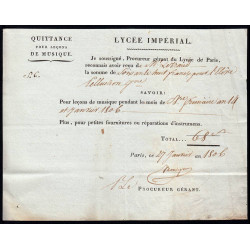 QUITTANCE
POUR LEÇONS
DE MUSIQUE.
LYCÉE IMPÉRIAL.
Je soussigné, Procureur gérant du Lycée de Paris,
reconnais avoir reçu de M.
la somme de Soixante huit francs pour l'Elève
SAVOIR:
Pour leçons de musique pendant le mois de an 14
et janvier 1806
Plus, pour petites fournitures ou réparations d'instrumens.
TOTAL 68
Paris, ce 27 Janvier an 1806
LE PROCUREUR GÉRANT.